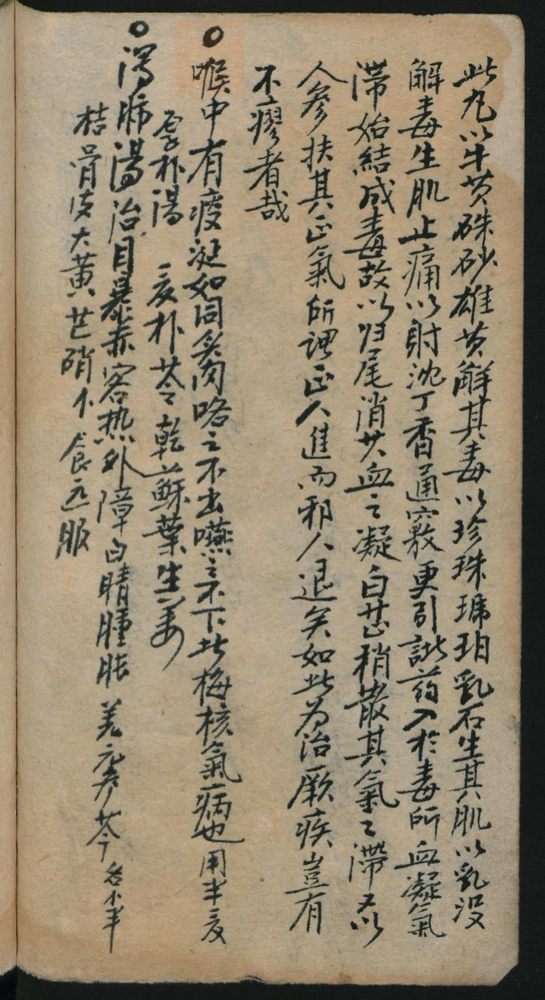 此丸以牛黄硃砂雄黄解其毒以珍珠琥珀乳石生其肌以乳没
解毒生肌止痛以射沈丁香通竅更引諸药入於毒所血凝氣
滞始結成毒故以归尾消其血之凝白芷稍散其氣之滯又以
人參扶其正氣所謂正人進而邪人退矣如此为治厥疾豈有
不瘳者哉
○喉中有痰涎如同炙肉咯之不出嚥之不下此梅核氣病也用半夏
厚朴湯 夏朴苓乾蘇葉生姜
○瀉肺湯治目暴赤客热外障白睛腫胀 羌 芩 各不半
桔骨皮大黄芒硝 食远服